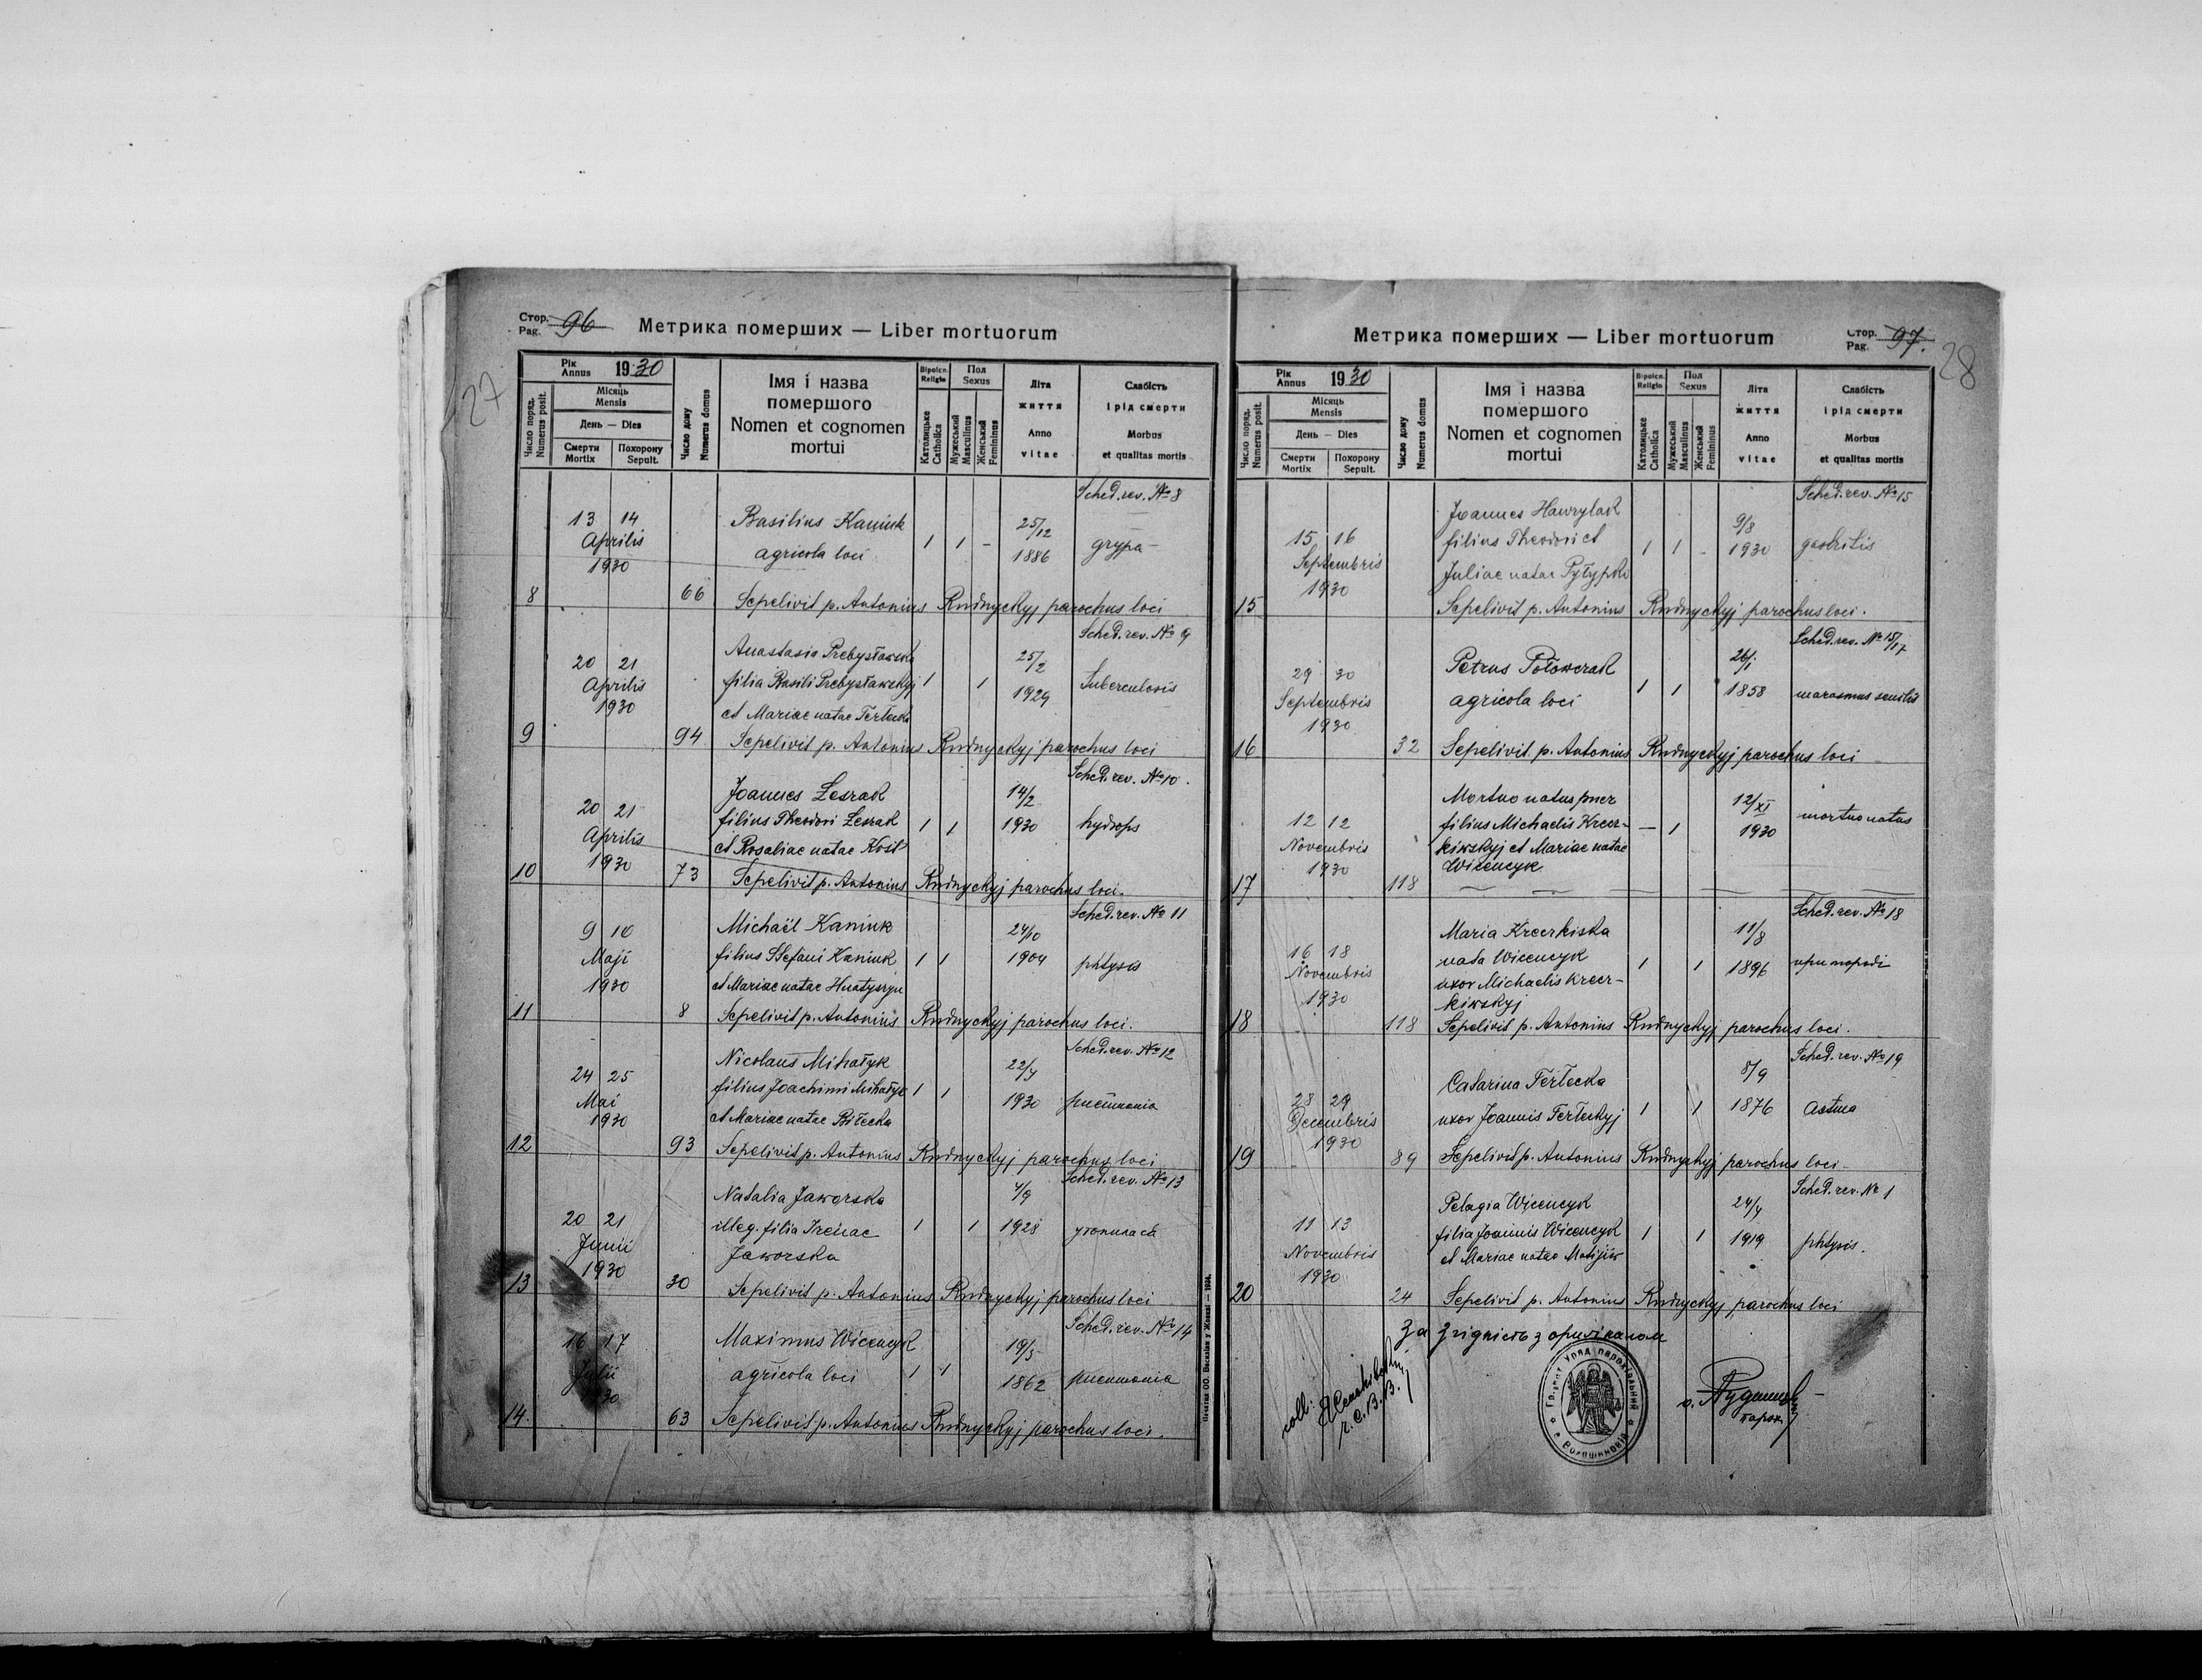 Стор. Pag. 96
Метрика померших — Liber mortuorum
27
Рік Annus 1930
Місяць Mensis
День — Dies
Смерти Mortix
Похорону Sepult.
Число поряд. Numerus posit.
Число дому Numerus domus
Імя і назва помершого
Nomen et cognomen mortui
Віроісп. Religio
Католицьке Catholica
Пол Sexus
Мужеський Masculinus
Женський Femininus
Літа життя
Anno vitae
Слабість і рід смерти
Morbus et qualitas mortis
Sched. rev. № 8
13 14 Basilius Kaniuk 25/12
Aprilis agricola loci 1 1 - 1886 grypa
1930
8 66 Sepelivit p. Antonius Rudnyckyj parochus loci
Sched. rev. № 9
Anastasia Prebysławska 25/2
20 21 filia Basili Prebysławskyj 1 1 1929 Tuberculosis
Aprilis et Mariae natae Terlecka
1930
9 94 Sepelivit p. Antonius Rudnyckyj parochus loci
Sched. rev. № 10.
Joannes Lesrak 14/2
20 21 filius Theodori Lesrak 1 1 1930 hydrops
Aprilis et Rosaliae natae Kost
1930
10 73 Sepelivit p. Antonius Rudnyckyj parochus loci.
Sched. rev. № 11
Michaël Kaniuk 24/10
9 10 filius Stefani Kaniuk 1 1 1904 phtysis
Maji et Mariae natae
1930
11 8 Sepelivit p. Antonius Rudnyckyj parochus loci.
Sched. rev. № 12
Nicolaus Mihałyk
24 25 filius Joachimi Mihałyk 1 1 1930 pneumonia
Mai et Mariae natae Biłecka
1930
12 93 Sepelivit p. Antonius Rudnyckyj parochus loci
Sched. rev. № 13
Natalia Jaworska
20 21 illeg. filia Irenae 1 1 1928 утопилась
Junii Jaworska
1930
13 30 Sepelivit p. Antonius Rudnyckyj parochus loci
Sched. rev. № 14
16 17 Maximus Wicencyk 19/5
Julii agricola loci 1 1 1862 pneumonia
1930
14. 63 Sepelivit p. Antonius Rudnyckyj parochus loci.
Печатня ОО. Василіян у Жовкві
Метрика померших — Liber mortuorum
Стор. Pag. 97.
28
Рік Annus 1930
Місяць Mensis
День — Dies
Смерти Mortix
Похорону Sepult.
Число поряд. Numerus posit.
Число дому Numerus domus
Імя і назва помершого
Nomen et cognomen mortui
Віроісп. Religio
Католицьке Catholica
Пол Sexus
Мужеський Masculinus
Женський Femininus
Літа життя
Anno vitae
Слабість і рід смерти
Morbus et qualitas mortis
Sched. rev. № 15
Joannes Hawrylak 9/8
15 16 filius Theodori et 1 1 - 1930 gastritis
Septembris Juliae natae Pyłypko
1930
15 Sepelivit p. Antonius Rudnyckyj parochus loci.
Sched. rev. № 15/17
29 30 Petrus Połowczak 26/1
Septembris agricola loci 1 1 1858 marasmus senilis
1930
16 32 Sepelivit p. Antonius Rudnyckyj parochus loci
Mortuo natus puer 12/XI
12 12 filius Michaelis Kreer- — 1 1930 mortuo natus
Novembris kiwskyj et Mariae natae
1930 Wicencyk
17 118
Sched. rev. № 18
Maria Kreerkiska 11/8
16 18 nata Wicencyk 1 1 1896 при породі
Novembris uxor Michaelis Kreer-
1930 kiwskyj
18 118 Sepelivit p. Antonius Rudnyckyj parochus loci.
Sched. rev. № 19
Catarina Terlecka 8/9
28 29 uxor Joannis Terleckyj 1 1 1876 Astma
Decembris
1930
19 89 Sepelivit p. Antonius Rudnyckyj parochus loci
Sched. rev. № 1
Pelagia Wicencyk 24/4
11 13 filia Joannis Wicencyk 1 1 1919 phtysis.
Novembris et Mariae natae Matijiw
1930
20 24 Sepelivit p. Antonius Rudnyckyj, parochus loci
За згідність з оригіналом
coll:
Уряд парохіяльний
о. Рудницький
парох